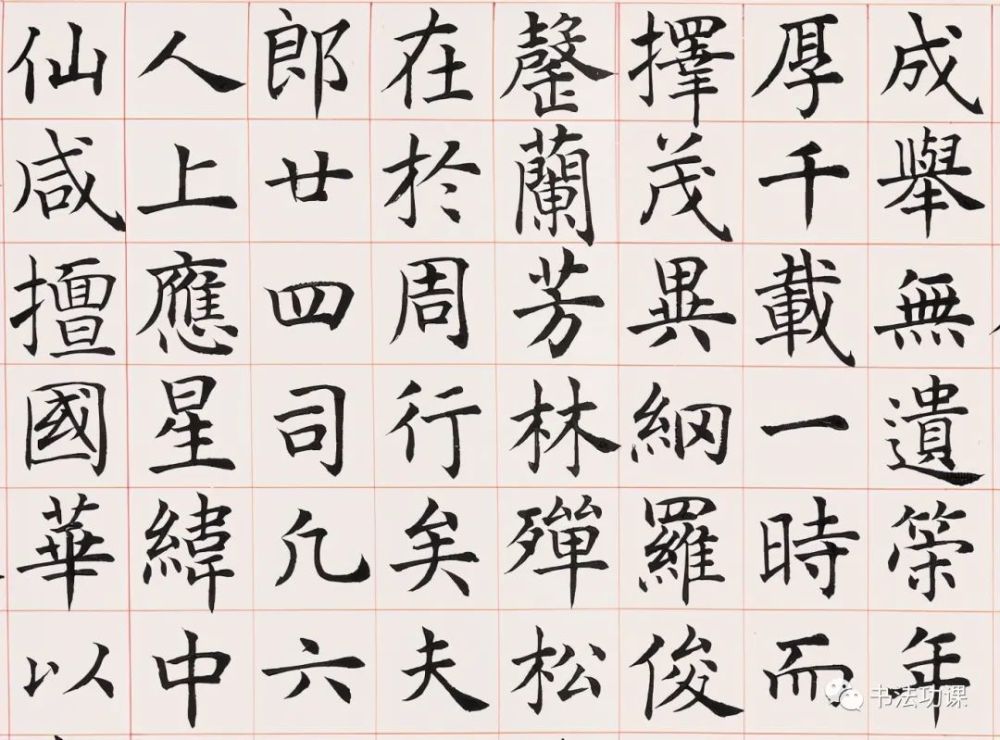 成舉無遺筞年
厚千載一時而
擇茂異網羅俊
罄蘭芳林殫松
在於周行矣夫
郎廿四司凡六
人上應星緯中
仙咸擅國華以
书法功课